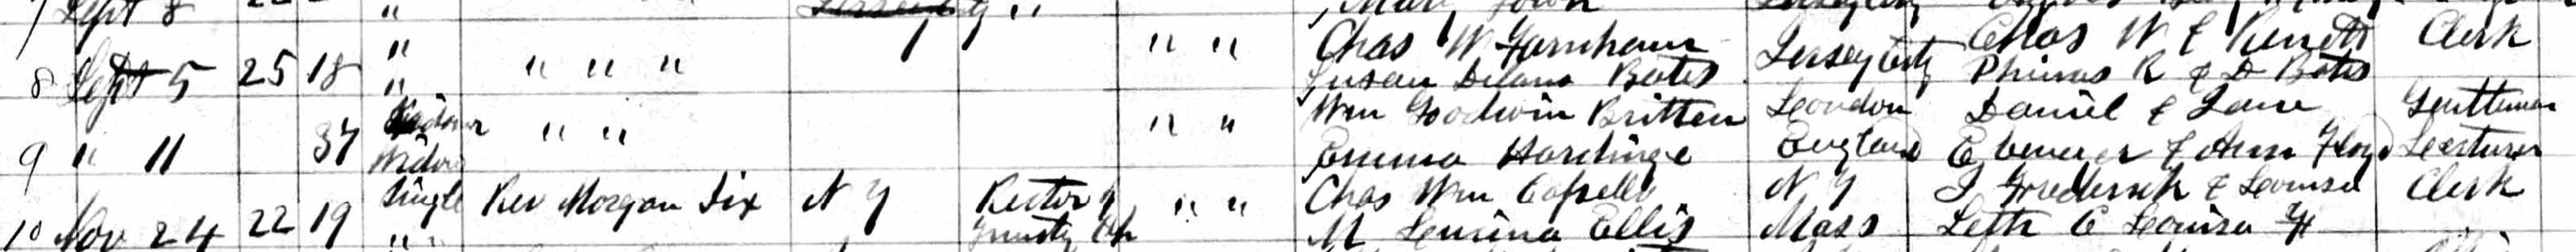 7 Sept 8 "
" " " Chas W Farnham Chas W & Clerk
8 Sept 5 25 18 " " " " Susan Delano Bates Jersey City Phineas R & D Bates
Widower " " " " Wm Goodwin Britten London Daniel & Jane Gentleman
9 " 11 37 Widow Emma Hardinge England Ebenezer & Ann Floyd Lecturer
Single Rev Morgan Dix N Y Rector of " " Chas Wm N Y Frederick & Louisa Clerk
10 Nov 24 22 19 " Trinity Ch M Ellis Mass Seth & Louisa H